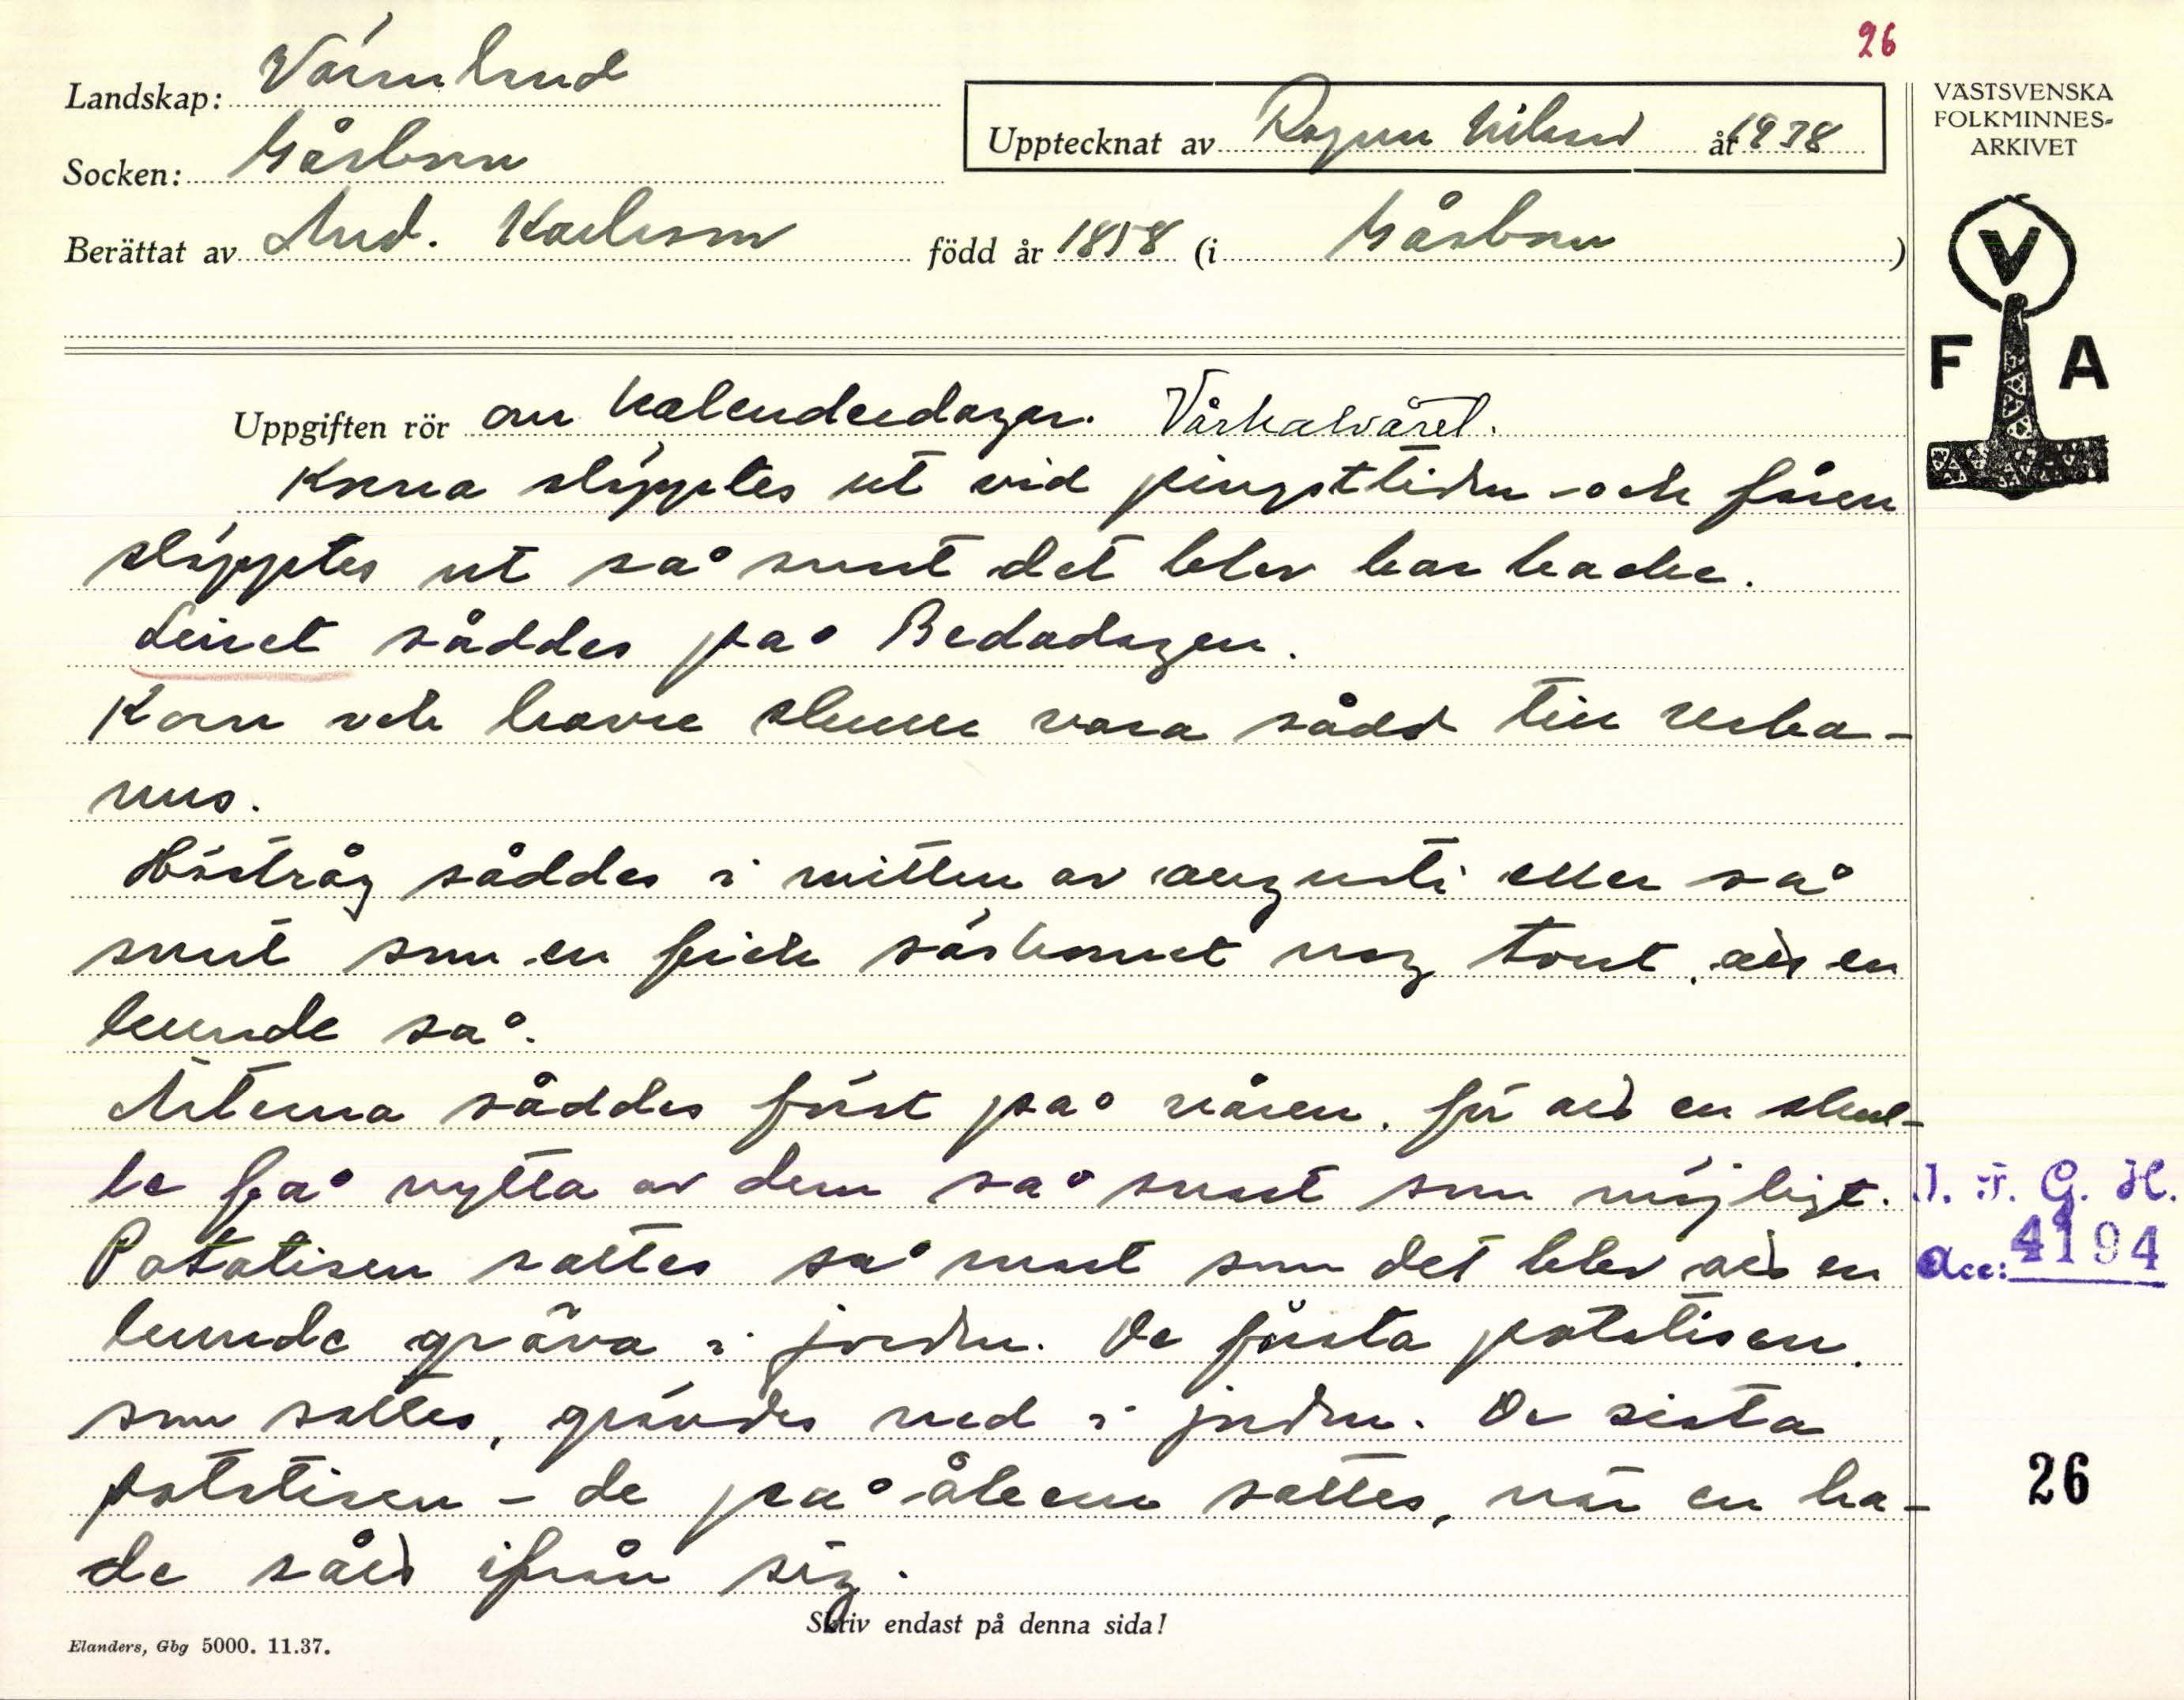 26
Landskap: Värmland
Socken: Gåsborn
Upptecknat av Ragnar Nilsson år 1938
Berättat av And. Karlsson född år 1858 (i Gåsborn)
VÄSTSVENSKA
FOLKMINNES-
ARKIVET
V
F A
Uppgiften rör om kalenderdagar.
Korna släpptes ut vid pingsttiden - och fåren
släpptes ut så snart det blev bar backe.
Linet såddes på Bedadagen.
Korn och havre skulle vara sådd till Urba-
nus.
Höstråg såddes i mitten av augusti eller så
snart som en fick såskornet nog torrt, att en
kunde så.
Ärterna såddes först på våren, för att en skul-
le få nytta av dem så snart som möjligt.
Potatisen sattes så snart som det blev att en
kunde gräva i jorden. De första potatisen,
som sattes, grävdes ned i jorden. De sista
potatisen - de på åkern sattes, när en ha-
de sått ifrån sig.
I. F. G. H.
Acc: 4194
26
Skriv endast på denna sida!
Elanders, Gbg 5000. 11.37.